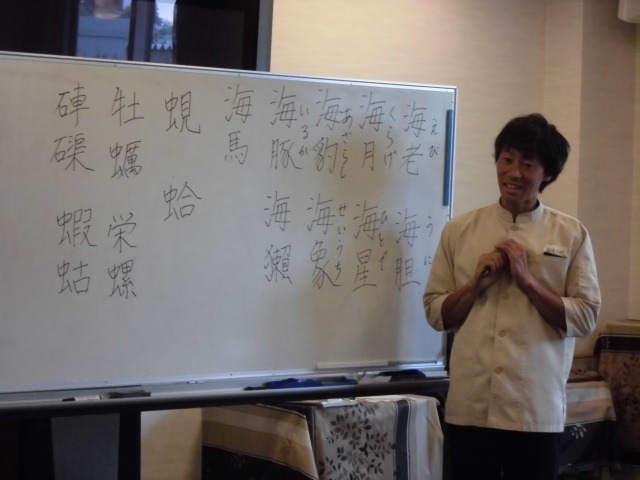 海老 えび
海胆 うに
海月 くらげ
海星 ひとで
海豹 あざらし
海象 せいうち
海豚 いるか
海獺
海馬
蜆
蛤
牡蠣
栄螺
硨磲
蝦蛄